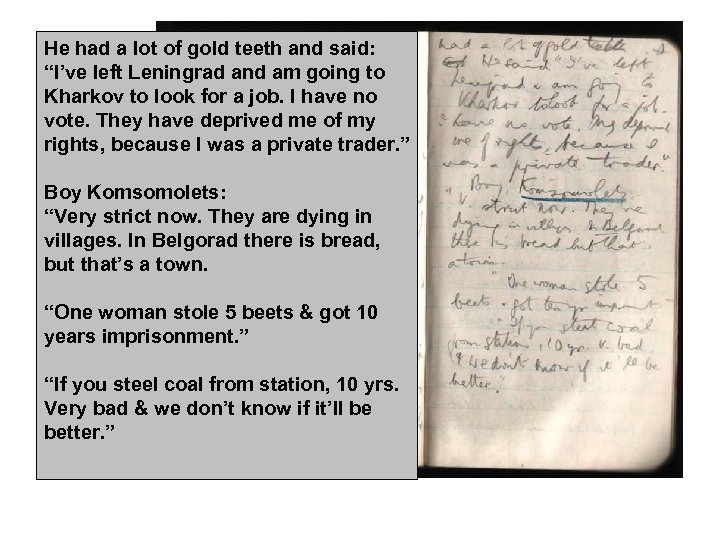 He had a lot of gold teeth and said:
“I’ve left Leningrad and am going to
Kharkov to look for a job. I have no
vote. They have deprived me of my
rights, because I was a private trader. ”
Boy Komsomolets:
“Very strict now. They are dying in
villages. In Belgorad there is bread,
but that’s a town.
“One woman stole 5 beets & got 10
years imprisonment. ”
“If you steel coal from station, 10 yrs.
Very bad & we don’t know if it’ll be
better. ”
had a lot of gold teeth
He said "I've left
Leningrad & am going to
Kharkov to look for a job.
I have no vote. They deprived
me of rights, because I
was a private trader."
Boy, Komsomolets.
"V. strict now. They're
dying in villages. In Belgorad
there is bread but that's
a town.
"One woman stole 5
beets & got ten yrs imprisonment
"If you steal coal
from station, 10 yrs. v. bad
& we don't know if it'll be
better."